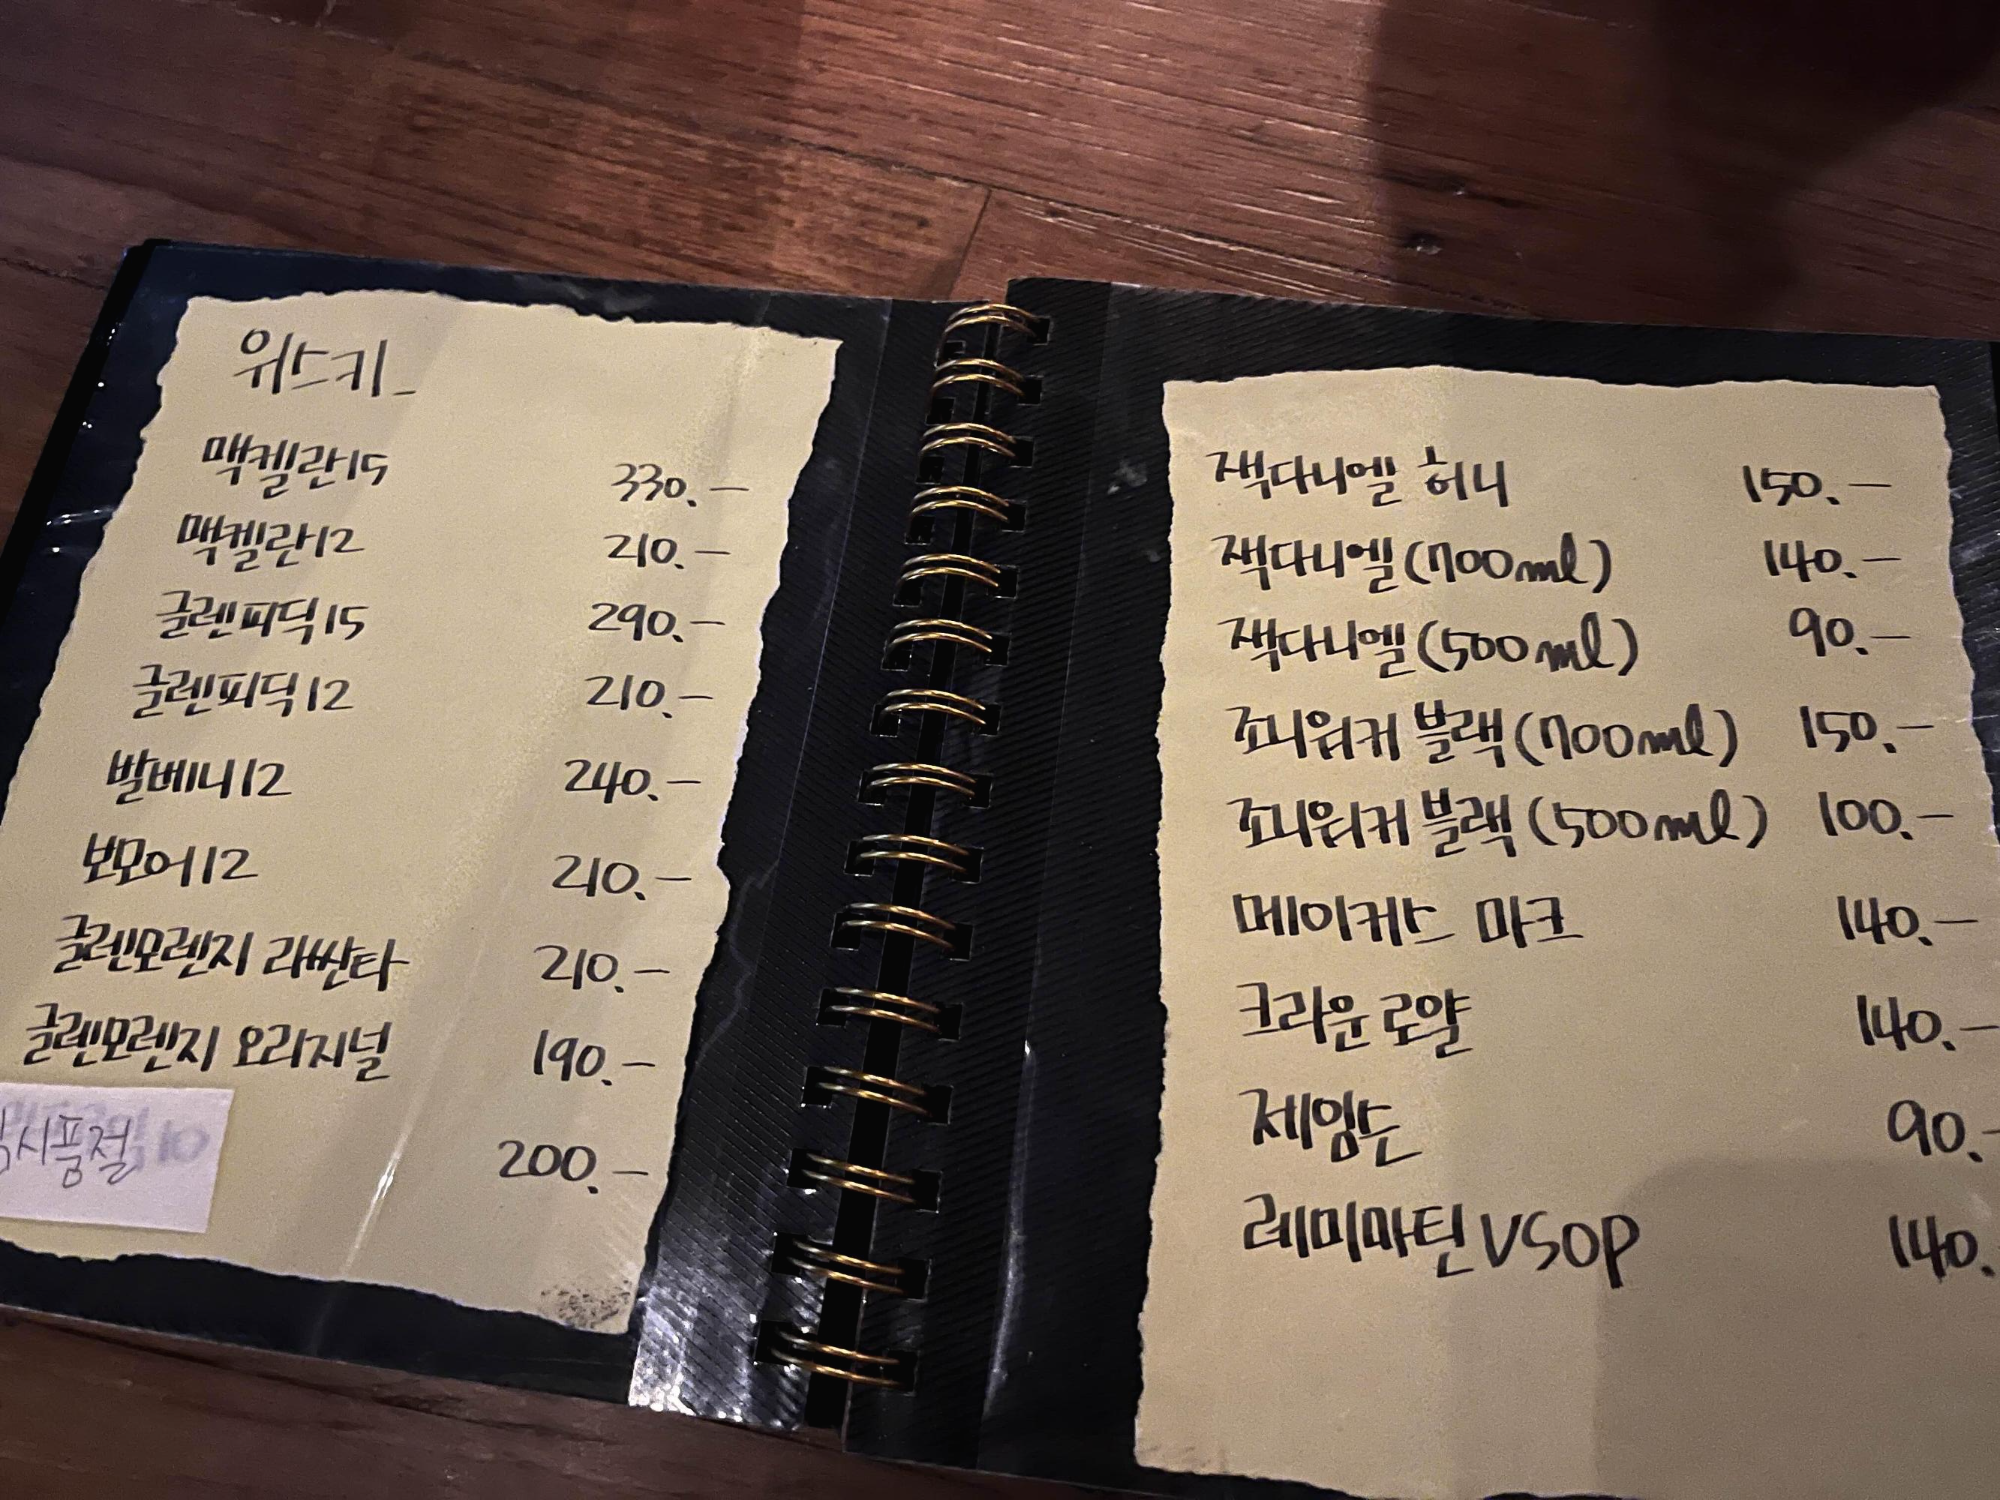 위스키_
맥켈란15 330.—
맥켈란12 210.—
글렌피딕15 290.—
글렌피딕12 210.—
발베니12 240.—
보모어12 210.—
글렌모렌지 라싼타 210.—
글렌모렌지 오리지널 190.—
시품절 200.—
잭다니엘 허니 150.—
잭다니엘(700ml) 140.—
잭다니엘(500ml) 90.—
죠니워커 블랙(700ml) 150.—
죠니워커 블랙(500ml) 100.—
메이커스 마크 140.—
크라운 로얄 140.—
제임슨 90.—
레미마틴 VSOP 140.